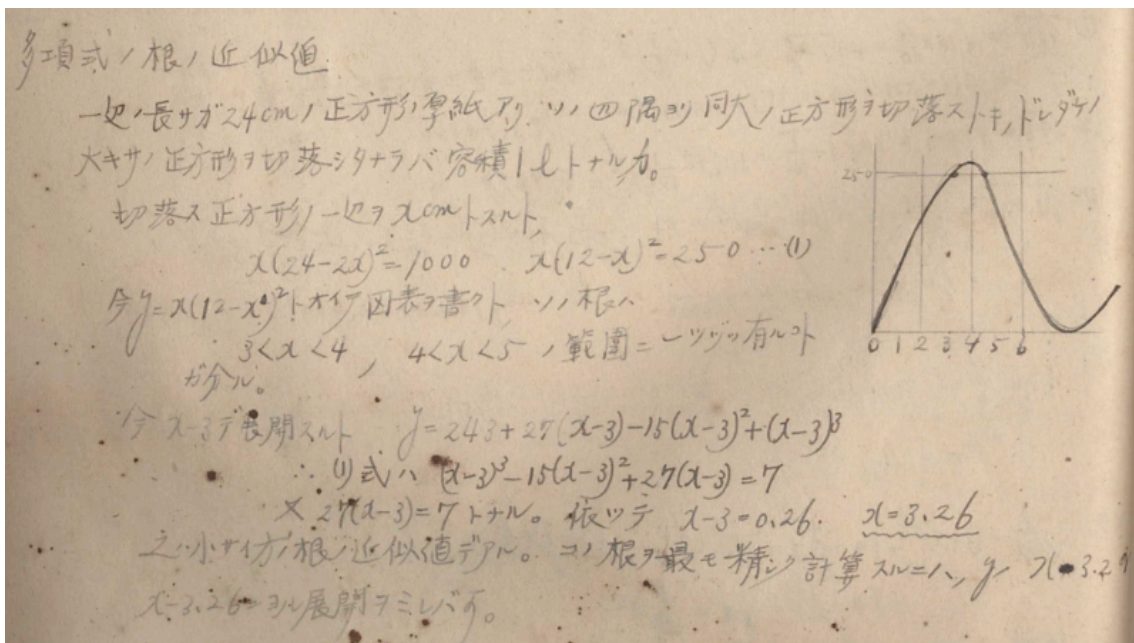 多項式ノ根ノ近似値
一辺ノ長サガ24cmノ正方形ノ厚紙アリ ソノ四隅ヨリ同大ノ正方形ヲ切落ストキ,ドレダケノ
大キサノ正方形ヲ切落シタナラバ容積1lトナルカ。
切落ス正方形ノ一辺ヲxcmトスルト,
x(24-2x)²=1000 x(12-x)²=250…(1)
今y=x(12-x)²トオイテ図表ヲ書クト ソノ根ハ
3<x<4, 4<x<5ノ範囲ニ一ツヅツ有ルコト
ガ分ル。
今x-3デ展開スルト y=243+27(x-3)-15(x-3)²+(x-3)³
∴(1)式ハ (x-3)³-15(x-3)²+27(x-3)=7
27(x-3)=7トナル。依ッテ x-3=0.26. x=3.26
之小サイ方ノ根ノ近似値デアル。コノ根ヲ最モ精シク計算スルニハ, y x 3.2
x-3.26ニヨル展開ヲミレバ可。
250
0 1 2 3 4 5 6